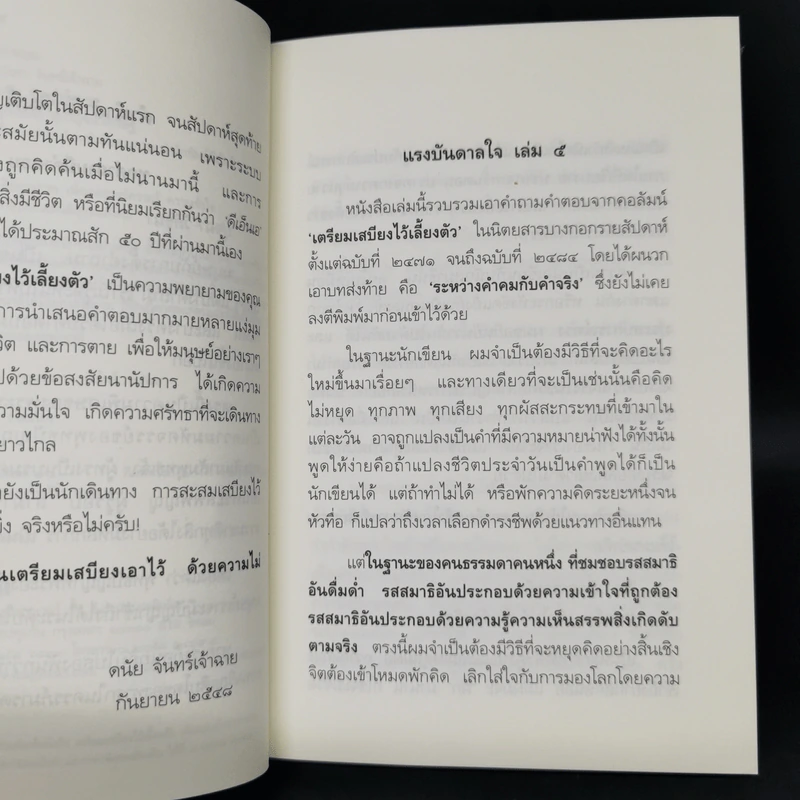 ญเติบโตในสัปดาห์แรก จนสัปดาห์สุดท้าย
ะสมัยนั้นตามทันแน่นอน เพราะระบบ
งถูกคิดค้นเมื่อไม่นานมานี้ และการ
สิ่งมีชีวิต หรือที่นิยมเรียกกันว่า ‘ดีเอ็นเอ’
ได้ประมาณสัก ๕๐ ปีที่ผ่านมานี้เอง
งไว้เลี้ยงตัว’ เป็นความพยายามของคุณ
การนำเสนอคำตอบมากมายหลายแง่มุม
วิต และการตาย เพื่อให้มนุษย์อย่างเราๆ
ปด้วยข้อสงสัยนานัปการ ได้เกิดความ
วามมั่นใจ เกิดความศรัทธาที่จะเดินทาง
ยาวไกล
ายังเป็นนักเดินทาง การสะสมเสบียงไว้
ยิ่ง จริงหรือไม่ครับ!
นเตรียมเสบียงเอาไว้ ด้วยความไม่
ดนัย จันทร์เจ้าฉาย
กันยายน ๒๕๔๘
แรงบันดาลใจ เล่ม ๕
หนังสือเล่มนี้รวบรวมเอาคำถามคำตอบจากคอลัมน์
‘เตรียมเสบียงไว้เลี้ยงตัว’ ในนิตยสารบางกอกรายสัปดาห์
ตั้งแต่ฉบับที่ ๒๔๗๑ จนถึงฉบับที่ ๒๔๘๔ โดยได้ผนวก
เอาบทส่งท้าย คือ ‘ระหว่างคำคมกับคำจริง’ ซึ่งยังไม่เคย
ลงตีพิมพ์มาก่อนเข้าไว้ด้วย
ในฐานะนักเขียน ผมจำเป็นต้องมีวิธีที่จะคิดอะไร
ใหม่ขึ้นมาเรื่อยๆ และทางเดียวที่จะเป็นเช่นนั้นคือคิด
ไม่หยุด ทุกภาพ ทุกเสียง ทุกผัสสะกระทบที่เข้ามาใน
แต่ละวัน อาจถูกแปลงเป็นคำที่มีความหมายน่าฟังได้ทั้งนั้น
พูดให้ง่ายคือถ้าแปลงชีวิตประจำวันเป็นคำพูดได้ก็เป็น
นักเขียนได้ แต่ถ้าทำไม่ได้ หรือพักความคิดระยะหนึ่งจน
หัวทื่อ ก็แปลว่าถึงเวลาเลือกดำรงชีพด้วยแนวทางอื่นแทน
แต่ในฐานะของคนธรรมดาคนหนึ่ง ที่ชมชอบรสสมาธิ
อันดื่มด่ำ รสสมาธิอันประกอบด้วยความเข้าใจที่ถูกต้อง
รสสมาธิอันประกอบด้วยความรู้ความเห็นสรรพสิ่งเกิดดับ
ตามจริง ตรงนี้ผมจำเป็นต้องมีวิธีที่จะหยุดคิดอย่างสิ้นเชิง
จิตต้องเข้าโหมดพักคิด เลิกใส่ใจกับการมองโลกโดยความ